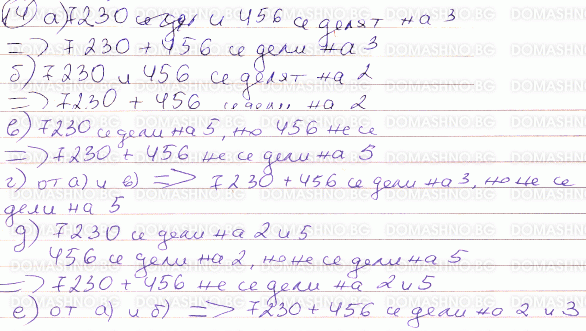 14 а) 7230 се дели и 456 се делят на 3
=> 7230 + 456 се дели на 3
б) 7230 и 456 се делят на 2
=> 7230 + 456 се дели на 2
в) 7230 се дели на 5, но 456 не се
=> 7230 + 456 не се дели на 5
г) от а) и в) => 7230 + 456 се дели на 3, но не се
дели на 5
д) 7230 се дели на 2 и 5
456 се дели на 2, но не се дели на 5
=> 7230 + 456 не се дели на 2 и 5
е) от а) и б) => 7230 + 456 се дели на 2 и 3